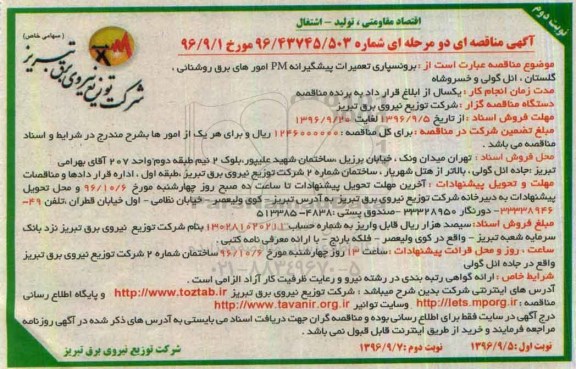 نوبت دوم
اقتصاد مقاومتی ، تولید - اشتغال
آگهی مناقصه ای دو مرحله ای شماره ۹۶/۴۳۷۴۵/۵۰۳ مورخ ۹۶/۹/۱
( سهامی خاص )
شرکت توزیع نیروی برق تبریز
موضوع مناقصه عبارت است از : برونسپاری تعمیرات پیشگیرانه PM امور های برق روشنائی ،
گلستان ، ائل گولی و خسروشاه
مدت زمان انجام کار : یکسال از ابلاغ قرار داد به برنده مناقصه
دستگاه مناقصه گزار : شرکت توزیع نیروی برق تبریز
مهلت فروش اسناد : از تاریخ ۱۳۹۶/۹/۵ لغایت ۱۳۹۶/۹/۲۰
مبلغ تضمین شرکت در مناقصه : برای کل مناقصه : ۱۲۴۶۰۰۰۰۰۰ ریال و برای هر یک از امور ها بشرح مندرج در شرایط و اسناد
مناقصه می باشد .
محل فروش اسناد : تهران میدان ونک ، خیابان برزیل ،ساختمان شهید علیپور،بلوک ۲ نیم طبقه دوم واحد ۲۰۷ آقای بهرامی
تبریز :جاده ائل گولی ، بالاتر از هتل شهریار ، ساختمان شماره ۲ شرکت توزیع نیروی برق تبریز ،طبقه اول ، اداره قرار دادها و مناقصات
مهلت و تحویل پیشنهادات : آخرین مهلت تحویل پیشنهادات تا ساعت ده صبح روز چهارشنبه مورخ ۹۶/۱۰/۶ و محل تحویل
پیشنهادات به دبیرخانه شرکت توزیع نیروی برق تبریز به آدرس تبریز- کوی ولیعصر - خیابان نظامی - اول خیابان قطران ،تلفن ۴۹-
۳۳۳۲۸۹۴۶ - دورنگار ۳۳۳۲۸۹۵۰ -صندوق پستی :۴۸۳۸-۵۱۳۸۵
مبلغ فروش اسناد: سیصد هزار ریال قابل واریز به شماره حساب ۱۳۰۲۸۱۰۲۰۲۱۱ بنام شرکت توزیع نیروی برق تبریز نزد بانک
سرمایه شعبه تبریز - واقع در کوی ولیعصر - فلکه بارنج - با ارائه معرفی نامه کتبی
ساعت ، روز و محل قرائت پیشنهادات : ساعت ۱۳ روز چهارشنبه مورخ ۹۶/۱۰/۶ ساختمان شماره ۲ شرکت توزیع نیروی برق تبریز
واقع در جاده ائل گولی
شرایط خاص : ارائه گواهی رتبه بندی در رشته نیرو و رعایت ظرفیت کار آزاد الزامی است .
آدرس های اینترنتی شرکت بدین شرح میباشد : شرکت توزیع نیروی برق تبریز http://www.toztab.ir و پایگاه اطلاع رسانی
مناقصه : http://iets.mporg.ir وسایت توانیر http://www.tavanir.org.ir
درج آگهی در سایت فقط برای اطلاع رسانی بوده و مناقصه گران جهت دریافت اسناد می بایستی به آدرس های ذکر شده در آگهی روزنامه
مراجعه فرمایند و خرید از طریق اینترنت قابل قبول نمی باشد .
نوبت اول :۱۳۹۶/۹/۵ نوبت دوم :۱۳۹۶/۹/۷
شرکت توزیع نیروی برق تبریز